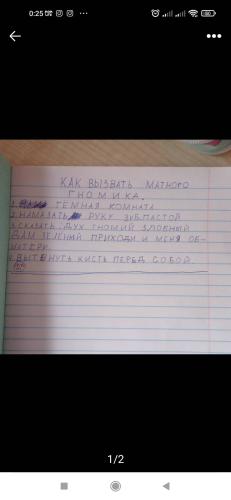 0:25
КАК ВЫЗВАТЬ МАТНОГО
ГНОМИКА.
1. ТЕМНАЯ КОМНАТА
2. НАМАЗАТЬ РУКУ ЗУБ.ПАСТОЙ
3. СКАЗАТЬ: ДУХ ГНОМИЙ ЗЛОБНЫЙ
ДАМ ЗЕЛЕНЫЙ ПРИХОДИ И МЕНЯ ОБ-
МАТЕРИ.
4. ВЫТЯНУТЬ КИСТЬ ПЕРЕД СОБОЙ
1/2